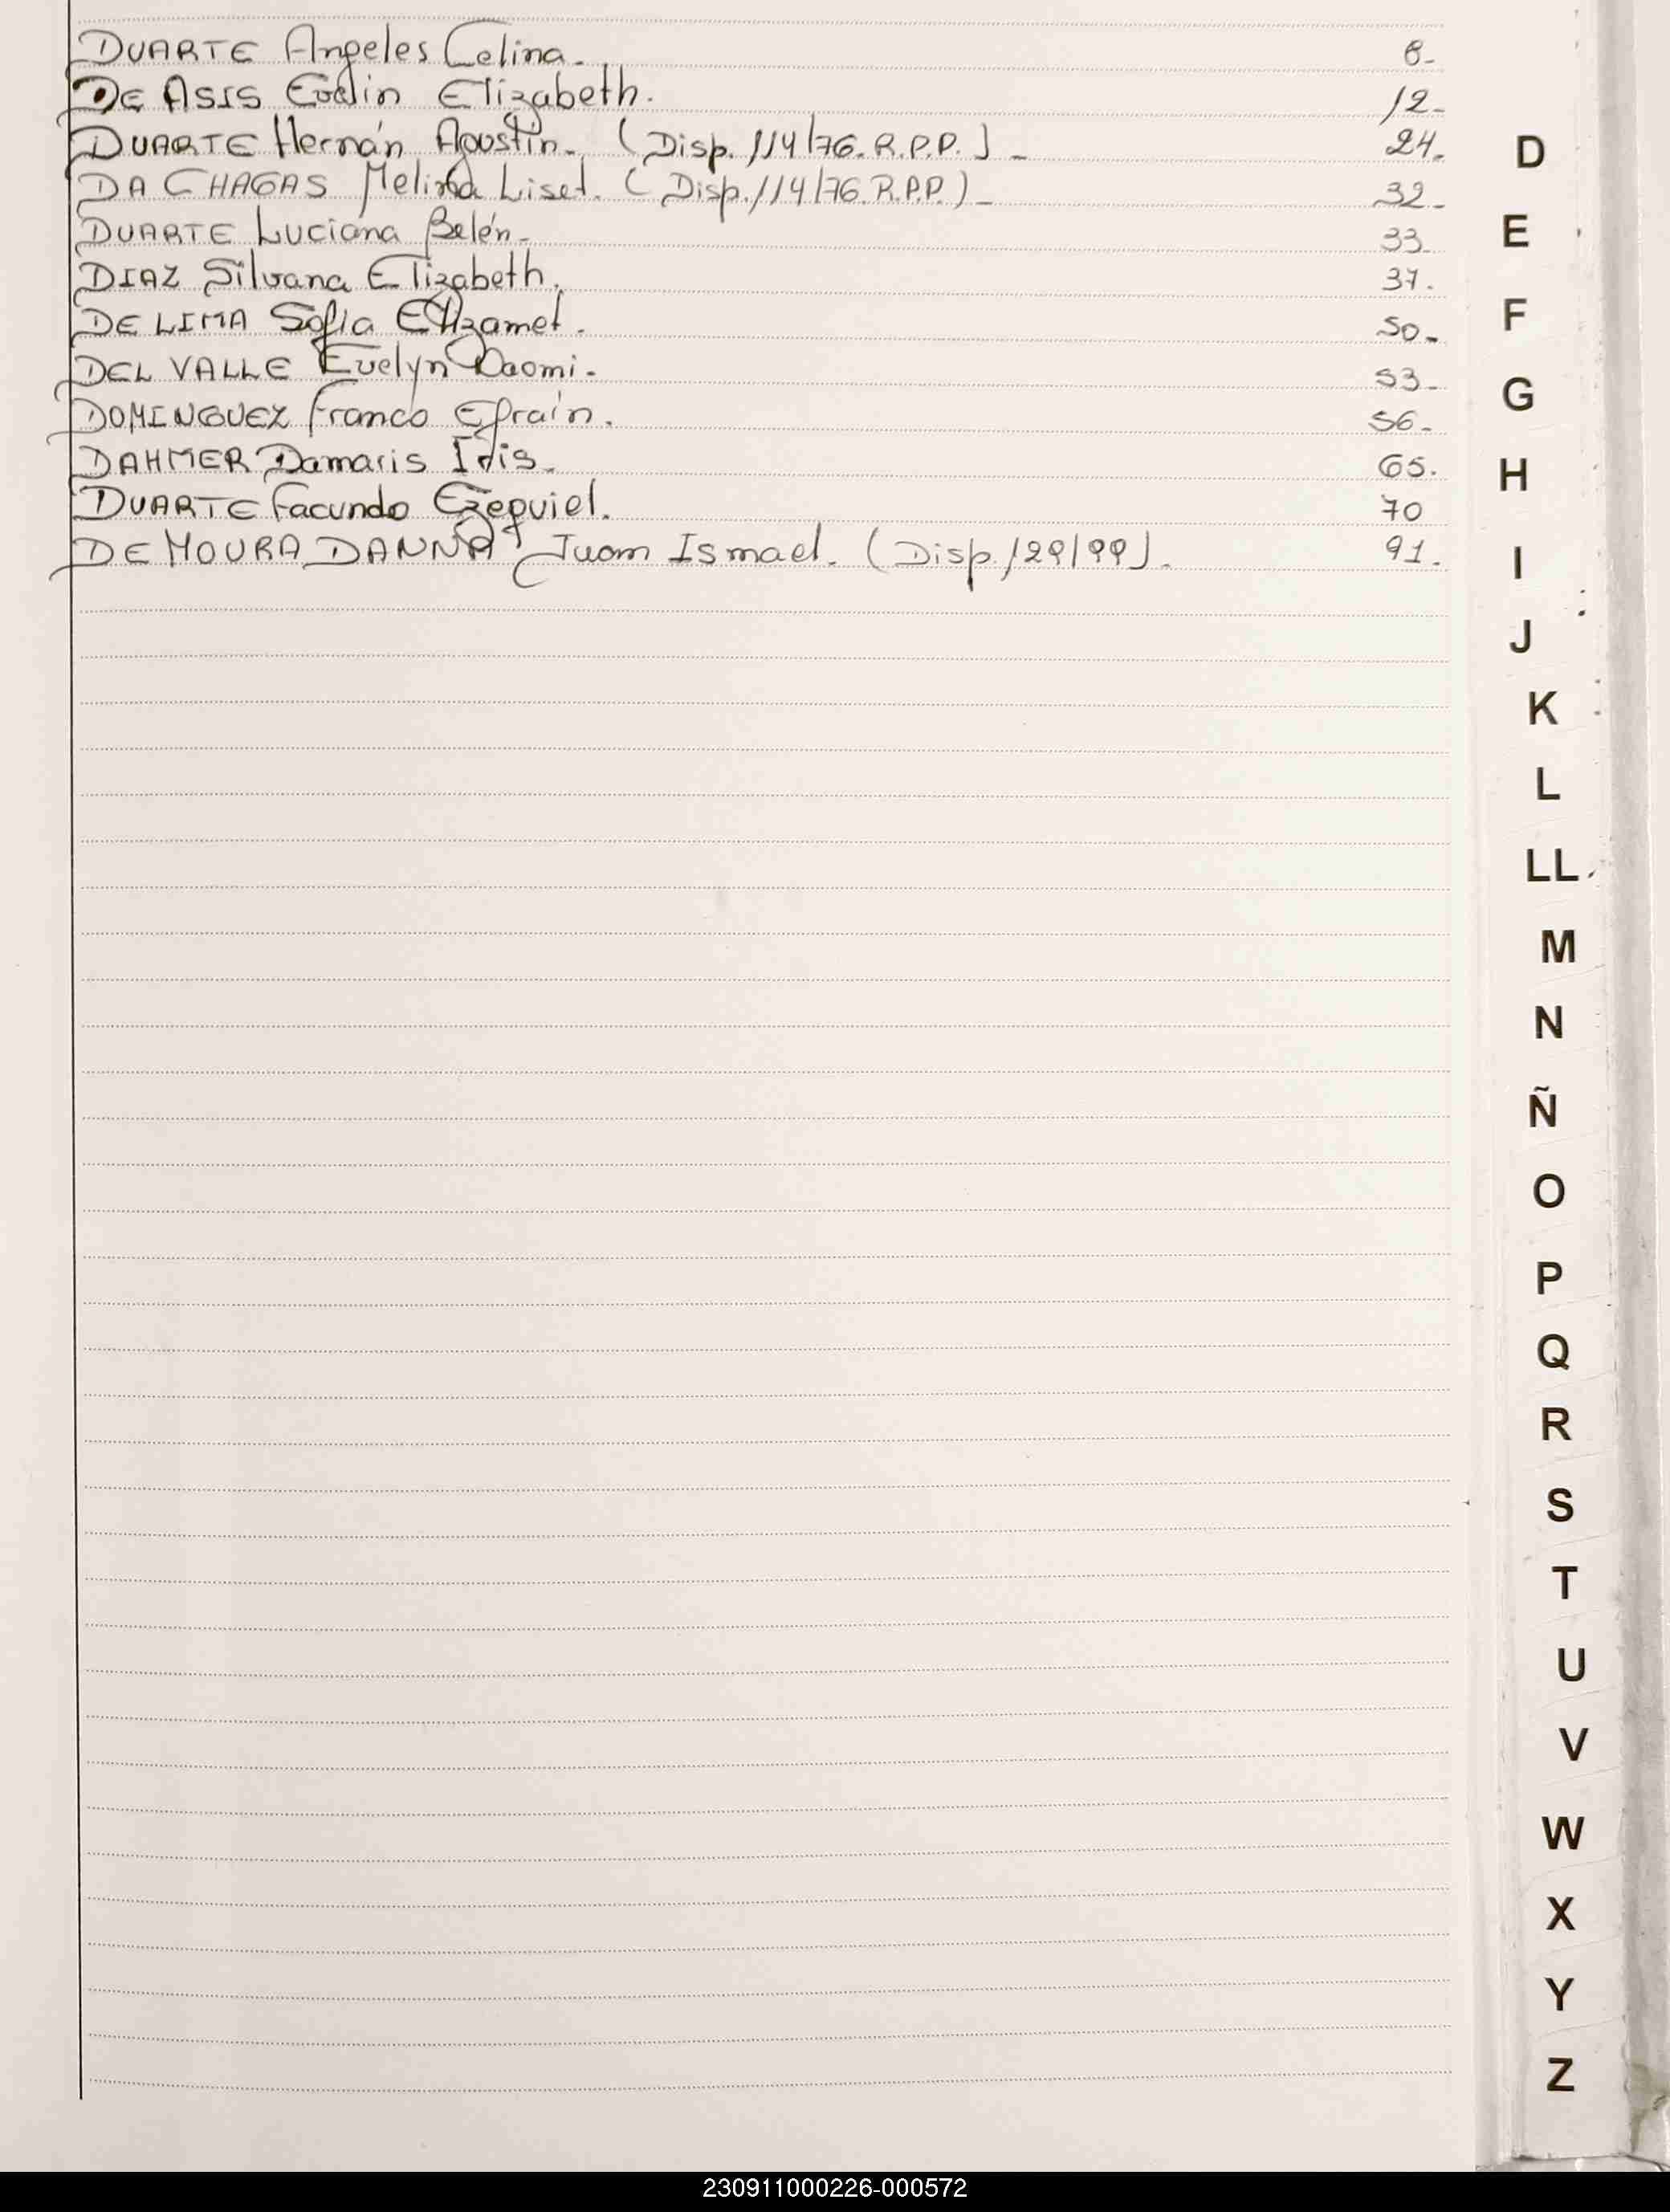 DUARTE Angeles Celina. 6-
DE ASIS Evelin Elizabeth. 12-
DUARTE Hernán Agustín. (Disp. 114/76. R.P.P.) - 24.
DA CHAGAS Liset. (Disp. 114/76. R.P.P.) - 32-
DUARTE Luciana Belén- 33-
DIAZ Silvana Elizabeth. 37.
DE LIMA Sofia Elizamet. 50-
DEL VALLE Evelyn Naomi. 53-
DOMINGUEZ Franco Efraín. 56-
DAHMER Damaris Iris. 65.
DUARTE Facundo Ezequiel. 70
DE MOURA DANNA Juan Ismael. (Disp. 129/99). 91.
D
E
F
G
H
I
J
K
L
LL
M
N
Ñ
O
P
Q
R
S
T
U
V
W
X
Y
Z
230911000226-000572